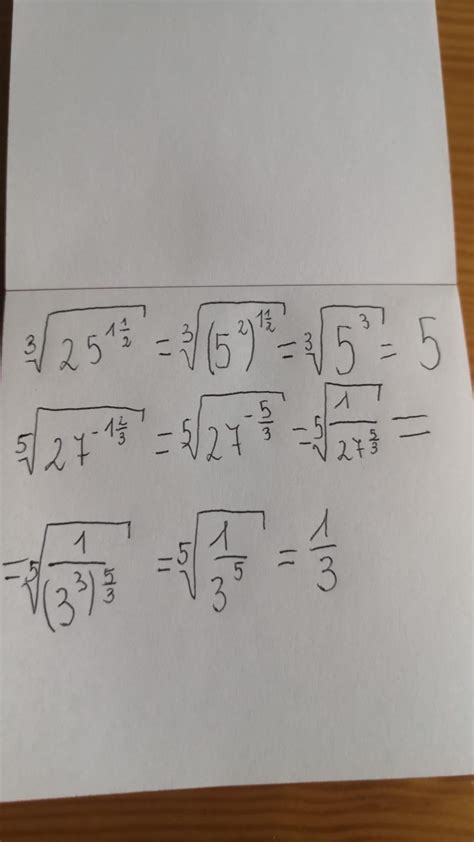 ∛(25^(1 1/2)) = ∛((5^2)^(1 1/2)) = ∛(5^3) = 5
⁵√(27^(-1 2/3)) = ⁵√(27^(-5/3)) = ⁵√(1/27^(5/3)) =
= ⁵√(1/(3^3)^(5/3)) = ⁵√(1/3^5) = 1/3